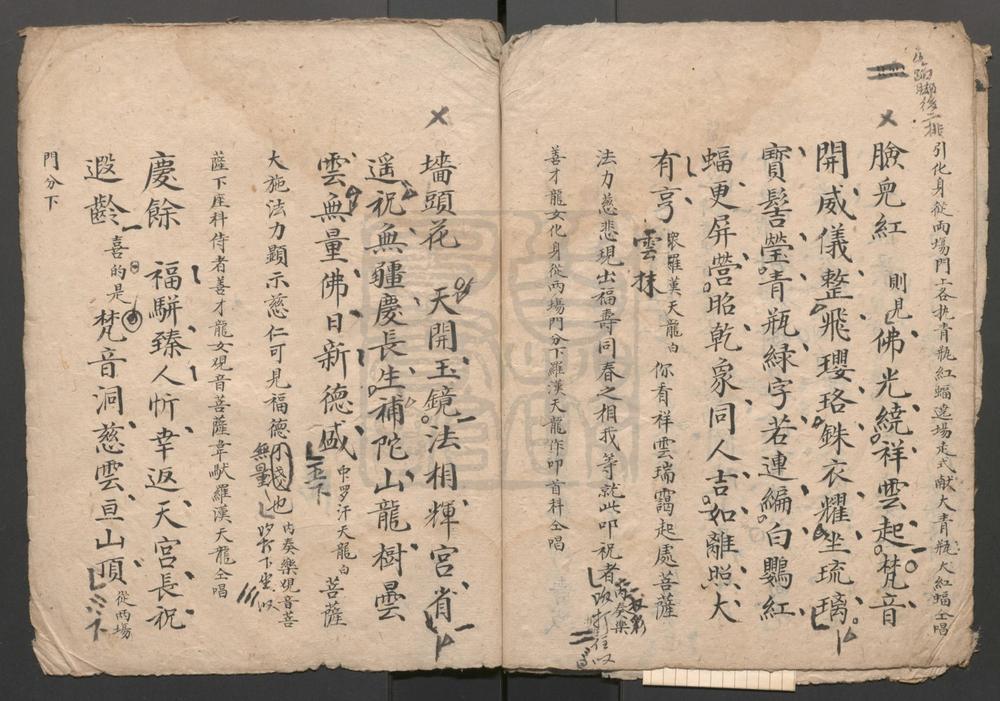 引化身從兩場門上各执青瓶紅蝠遶場走式献大青瓶大紅蝠仝唱
臉兒紅 則見佛光繞祥雲起梵音
開威儀整飛瓔珞銖衣耀坐琉璃
寳髻瑩青瓶綠字若連編白鸚紅
蝠更屏營昭乾象同人吉如離照大
有亨 衆羅漢天龍白 你看祥雲瑞靄起處菩薩
雲抹
法力慈悲現出福壽同春之相我等就此叩祝者
內奏樂
善才龍女化身從兩場門分下羅漢天龍作叩首科仝唱
墻頭花 天開玉鏡法相輝宮省
遥祝無疆慶長生補陀山龍樹曇
雲無量佛日新德盛 中罗汗天龍白 菩薩
大施法力顯示慈仁可見福德不淺也 內奏樂觀音菩
無量
薩下座科侍者善才龍女观音菩薩韋馱羅漢天龍仝唱
慶餘 福駢臻人忻幸返天宫長祝
遐齡 喜的是梵音洞慈雲亘山頂 從兩場
門分下